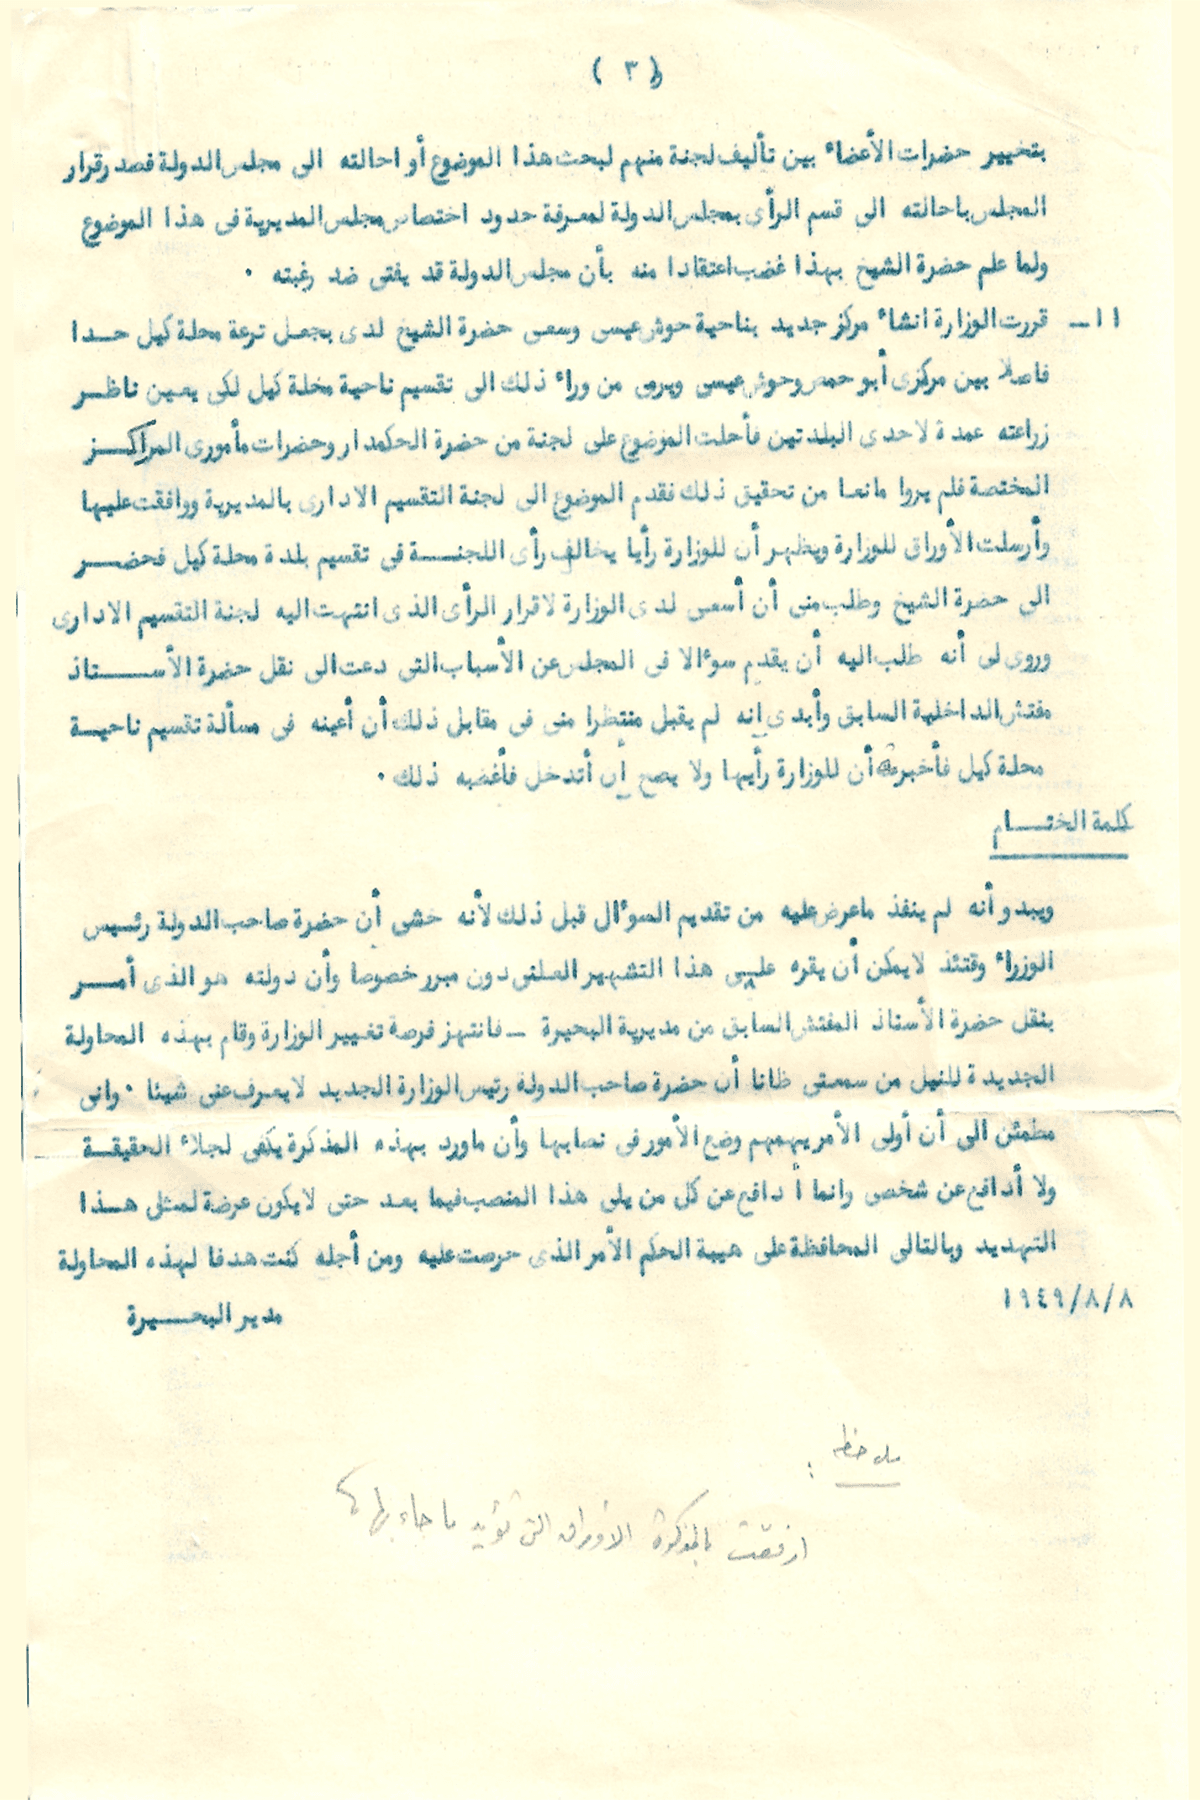 ( ٣ )
بتخيير حضرات الأعضاء بين تأليف لجنة منهم لبحث هذا الموضوع أو احالته الى مجلس الدولة قصد رقرار
المجلس باحالته الى قسم الرأى بمجلس الدولة لمعرفة حدود اختصاص مجلس المديرية فى هذا الموضوع
ولما علم حضرة الشيخ بهذا غضب اعتقادا منه بأن مجلس الدولة قد يفتى ضد رغبته .
١١ـ قررت الوزارة انشاء مركز جديد بناحية حوش عيسى وسعى حضرة الشيخ لدى بجعل ترعة محلة كيل حـدا
فاصلا بين مركزى أبو حمص وحوش عيسى ويرمى من وراء ذلك الى تقسيم ناحية محلة كيل لكى يعين ناظـر
زراعته عمدة لاحدى البلدتين فأحلت الموضوع على لجنة من حضرة الحكمدار وحضرات مأمورى المراكـز
المختصة فلم يروا مانعا من تحقيق ذلك فقدم الموضوع الى لجنة التقسيم الادارى بالمديرية ووافقت عليها
وأرسلت الأوراق للوزارة ويظهر أن للوزارة رأيا يخالف رأى اللجنـــة فى تقسيم بلدة محلة كيل فحضـر
الى حضرة الشيخ وطلب منى أن أسعى لدى الوزارة لاقرار الرأى الذى انتهت اليه لجنة التقسيم الادارى
وروى لى أنه طلب اليه أن يقدم سوءالا فى المجلس عن الأسباب التى دعت الى نقل حضرة الأســـتاذ
مفتش الداخلية السابق وأبدى انه لم يقبل منتظرا منى فى مقابل ذلك أن أعينه فى مسألة تقسيم ناحيـة
محلة كيل فأخبرته أن للوزارة رأيها ولا يصح أن أتدخل فأغضبه ذلك .
كلمة الختـــام
ويبدو أنه لم ينفذ ماعرض عليه من تقديم السوءال قبل ذلك لأنه خشى أن حضرة صاحب الدولة رئيس
الوزراء وقتئذ لا يمكن أن يقره على هذا التشهير العلنى دون مبرر خصوصا وأن دولته هو الذى أمـر
بنقل حضرة الأستاذ المفتش السابق من مديرية البحيرة ـ فانتهز فرصة تغيير الوزارة وقام بهذه المحاولة
الجديدة للنيل من سمعتى ظانا أن حضرة صاحب الدولة رئيس الوزارة الجديد لا يعرف عنى شيئا . وانى
مطمئن الى أن أولى الأمر يهمهم وضع الأمور فى نصابها وأن ماورد بهذه المذكرة يكفى لجلاء الحقيقـة
ولا أدافع عن شخصى وانما أدافع عن كل من يلى هذا المنصب فيما بعد حتى لا يكون عرضة لمثل هـذا
التهديد وبالتالى المحافظة على هيبة الحكم الأمر الذى حرصت عليه ومن أجله كنت هدفا لهذه المحاولة
١٩٤٩/٨/٨
مدير البحـــيرة
ملاحظه :
ارفقت بالمذكرة الأوراق التى تؤيد ما جاء بها